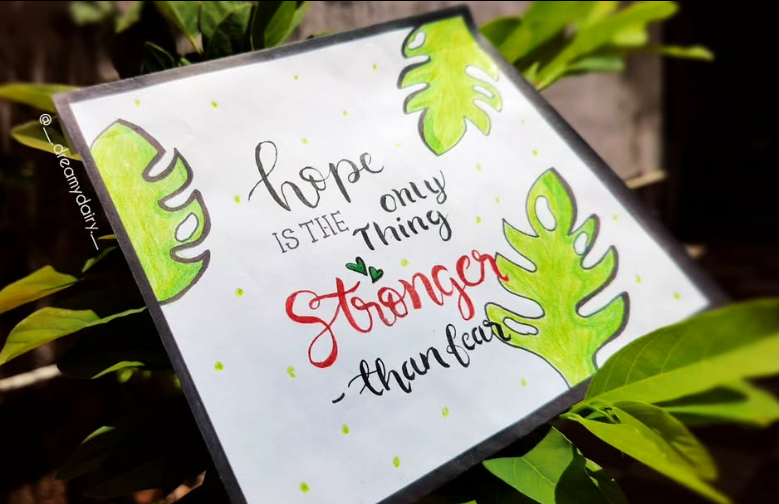 @__dreamydairy__
hope
IS THE only
Thing
Stronger
-than fear